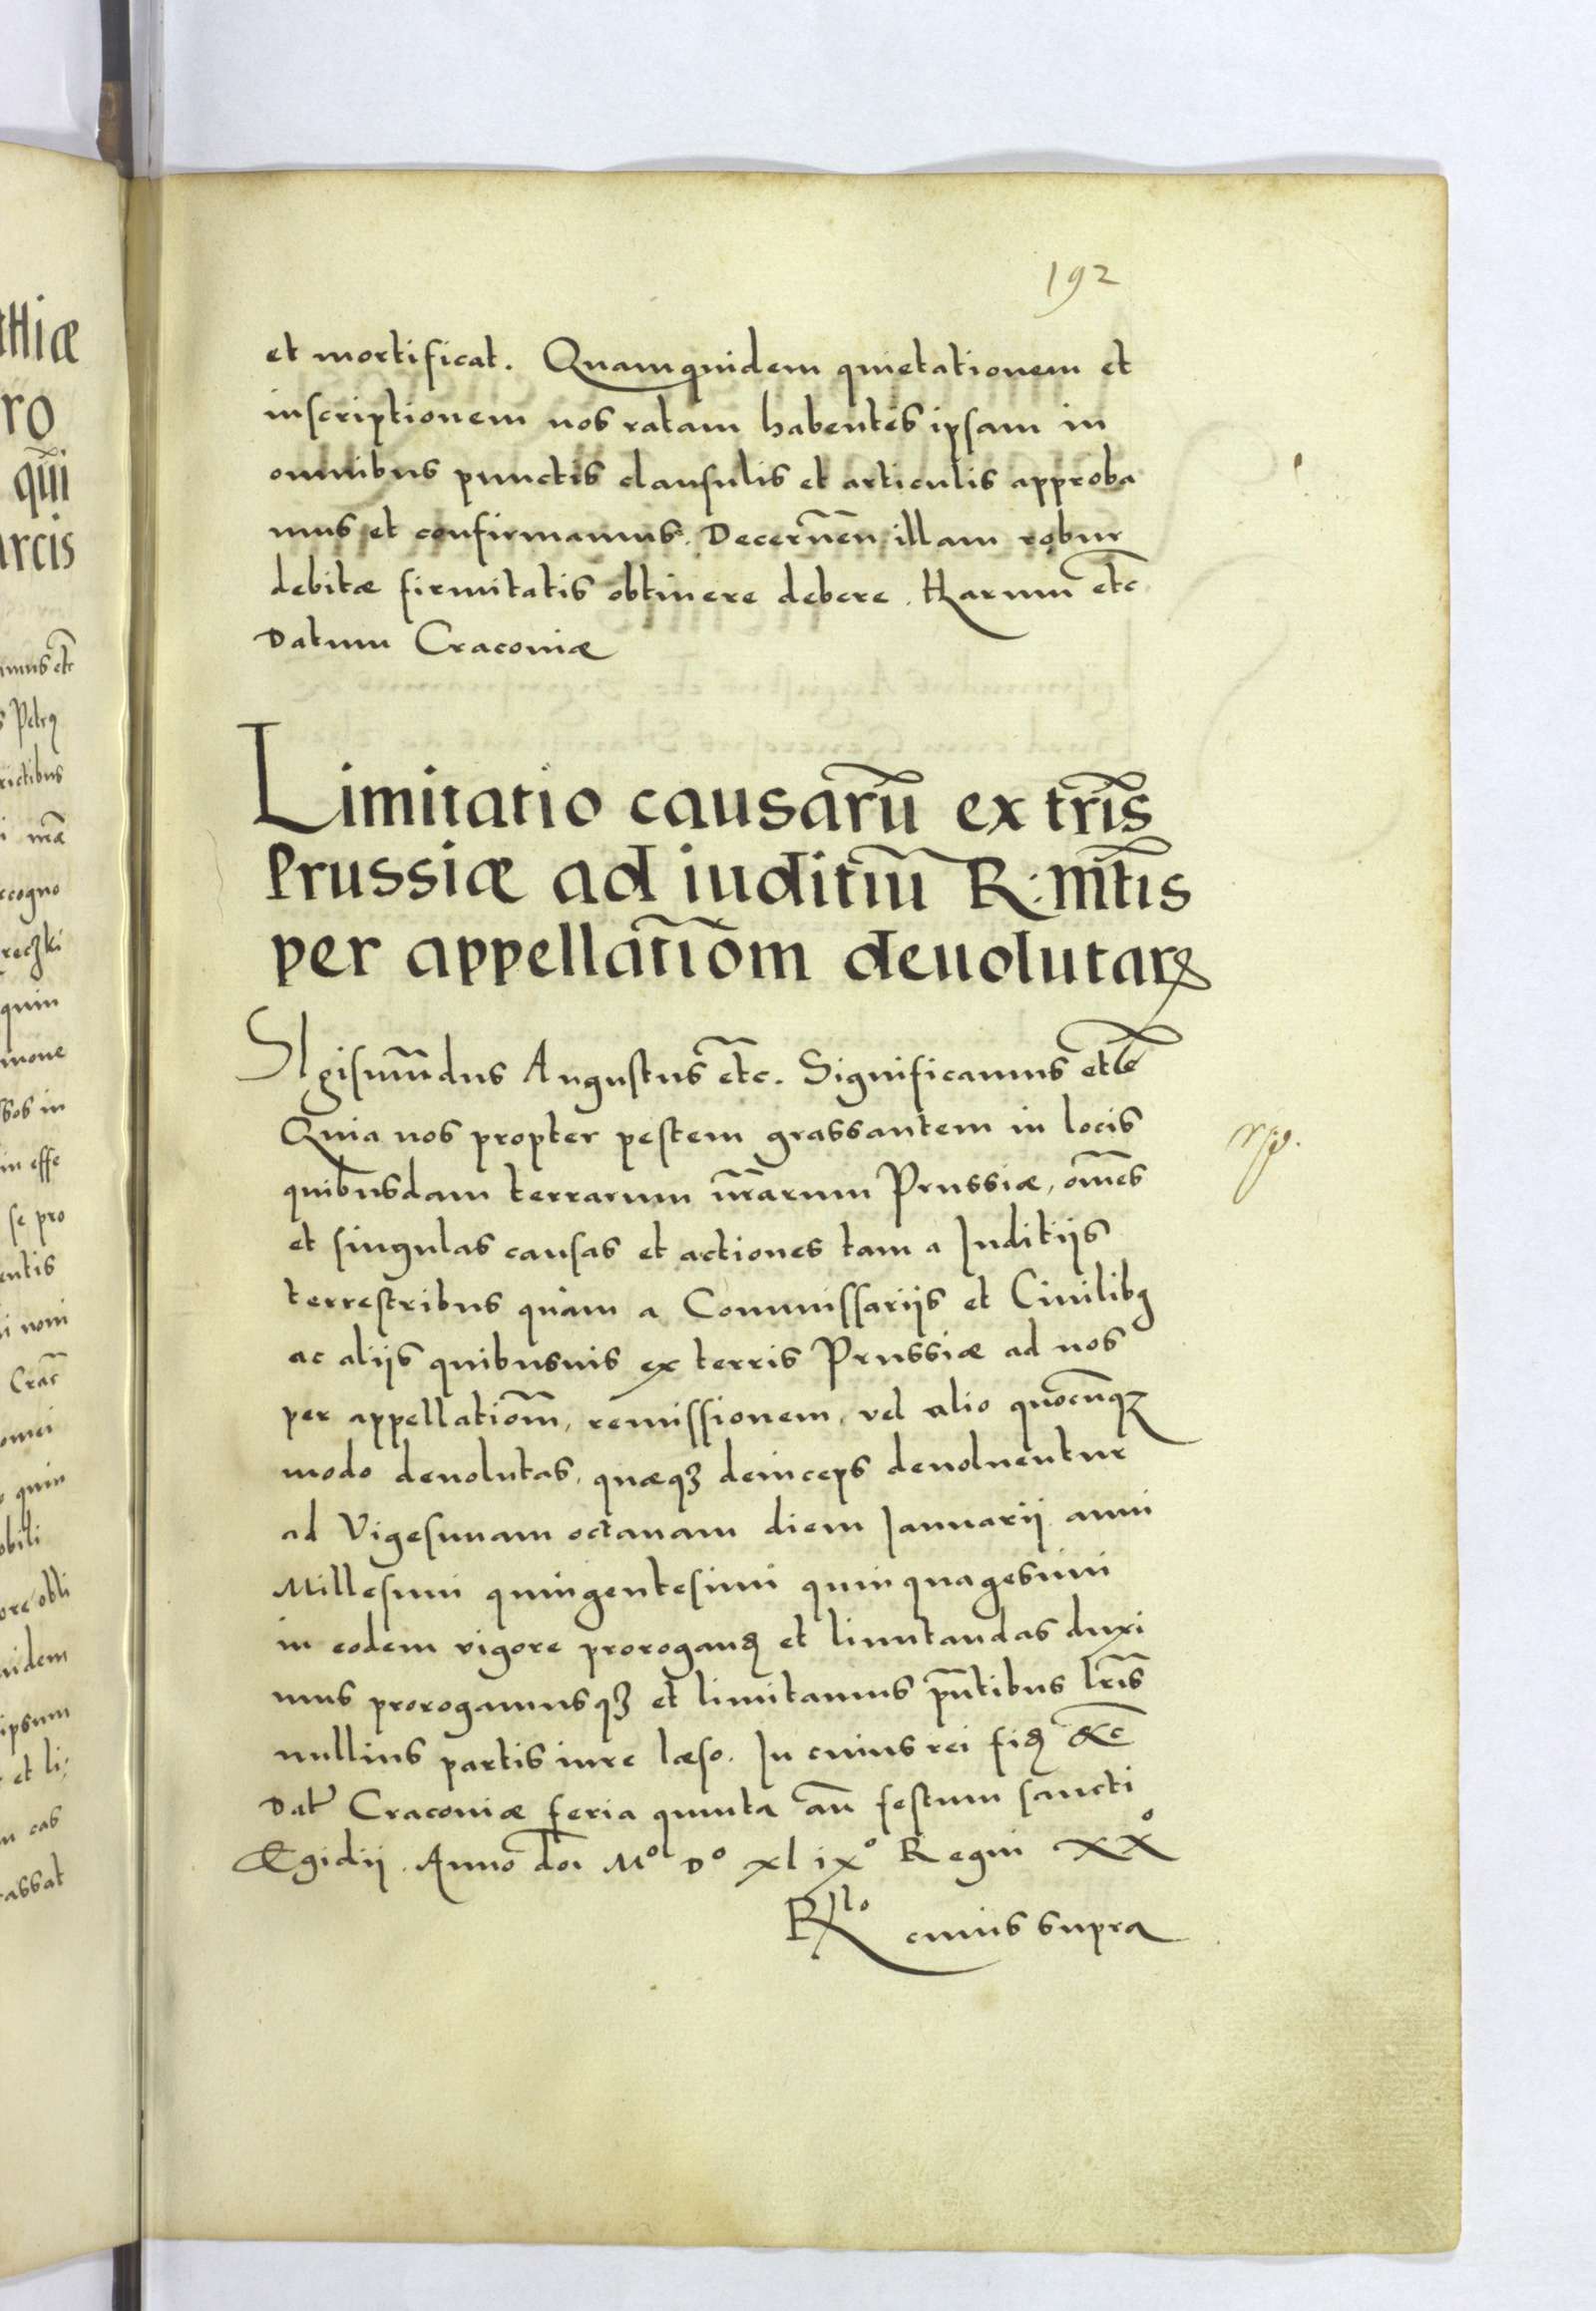 192
et mortificat. Quamquidem quietationem et
inscriptionem nos ratam habentes ipsam in
omnibus punctis clausulis et articulis approba
mus et confirmamus. Decerneñ illam robur
debitæ firmitatis obtinere debere. Harum etc̃
Datum Cracouiæ
Limitatio causarũ ex tr̃is
Prussiæ ad iuditiũ R: Mt̃is
per appellatiõm deuolutarꝝ
SIgismũdus Augustus etc̃. Significamus
Quia nos propter pestem grassantem in locis
quibusdam terrarum nr̃arum Prussiæ, om̃es
et singulas causas et actiones tam a Iuditijs
terrestribus quàm a Commissarijs et Ciuilibꝫ
ac alijs quibusuis ex terris Prussiæ ad nos
per appellatiõm, remissionem, vel alio quocũqꝫ
modo deuolutas, quæqꝫ deinceps deuoluentur
ad Vigesimam octauam diem Ianuarij anni
Millesimi quingentesimi quinquagesimi
in eodem vigore prorogand̃ et limitandas duxi
mus prorogamusqꝫ et limitamus pñtibus lr̃is
nullius partis iure læso. In cuius rei fid̃ &c̃
Dat̃ Cracouiæ feria quinta añ festum sancti
Ægidij. Anno dñi Mº Dº xlixº Regni XXº
Rllo cuius supra